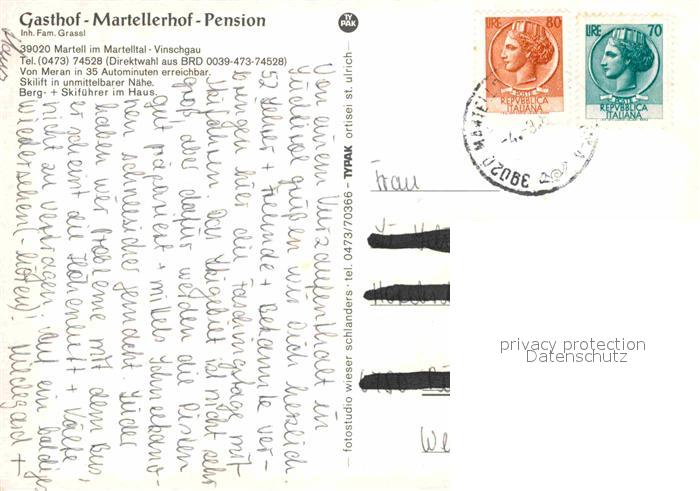 Gasthof - Martellerhof - Pension
Inh. Fam. Grassl
39020 Martell im Martelltal - Vinschgau
Tel. (0473) 74528 (Direktwahl aus BRD 0039-473-74528)
Von Meran in 35 Autominuten erreichbar.
Skilift in unmittelbarer Nähe.
Berg- + Skiführer im Haus.
Von einem Kurzaufenthalt in
Südtirol grüßen wir Dich herzlich.
52 Lehrer + Freunde + Bekannte ver-
bringen hier die Faschingstage mit
Skifahren. Das Skigebiet ist nicht sehr
groß aber dafür werden die Pisten
gut präpariert + mittels Schneekano-
nen schneesicher gemacht. Leider
haben wir Probleme mit dem Bus,
er scheint die Höhenluft + Kälte
nicht zu vertragen. Auf ein baldiges
Wiedersehen! Hildegard +
Klaus
TY
PAK
fotostudio wieser schlanders · tel. 0473/70366 – TYPAK ortisei st. ulrich
LIRE 80
POSTE
REPVBBLICA
ITALIANA
LIRE 70
POSTE
REPVBBLICA
ITALIANA
39020 MARTELL
Frau
privacy protection
Datenschutz